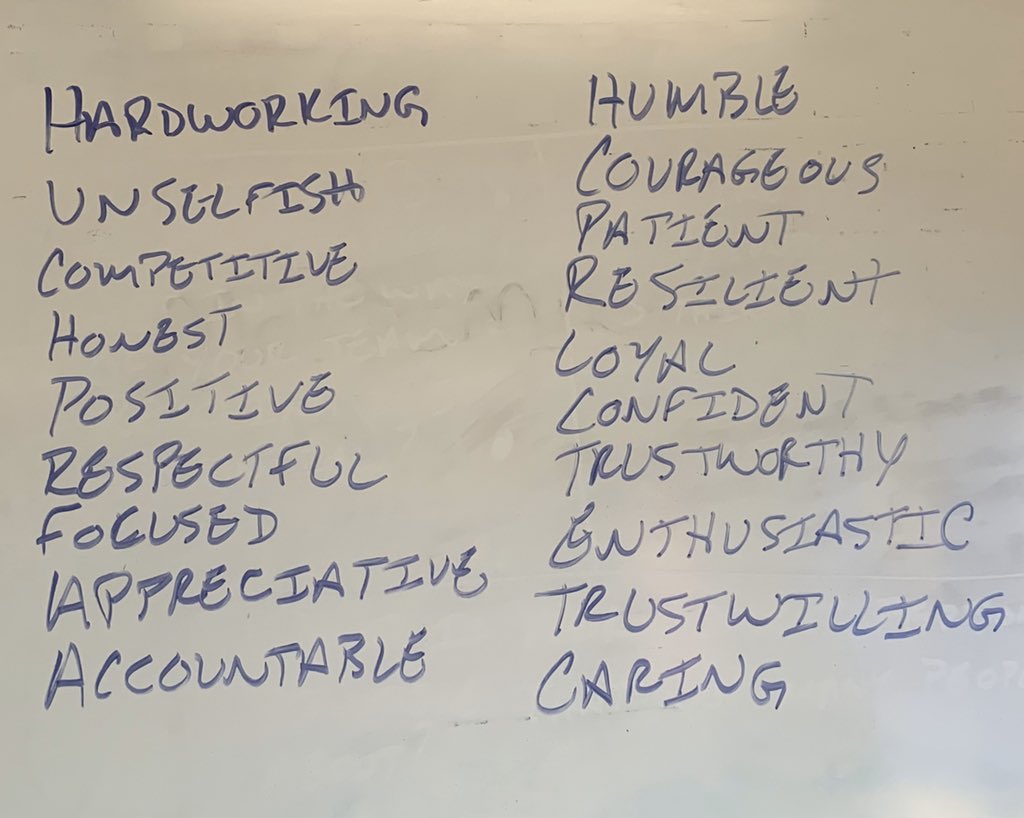 HARDWORKING
UNSELFISH
COMPETITIVE
HONEST
POSITIVE
RESPECTFUL
FOCUSED
APPRECIATIVE
ACCOUNTABLE
HUMBLE
COURAGEOUS
PATIENT
RESILIENT
LOYAL
CONFIDENT
TRUSTWORTHY
ENTHUSIASTIC
TRUSTWILLING
CARING